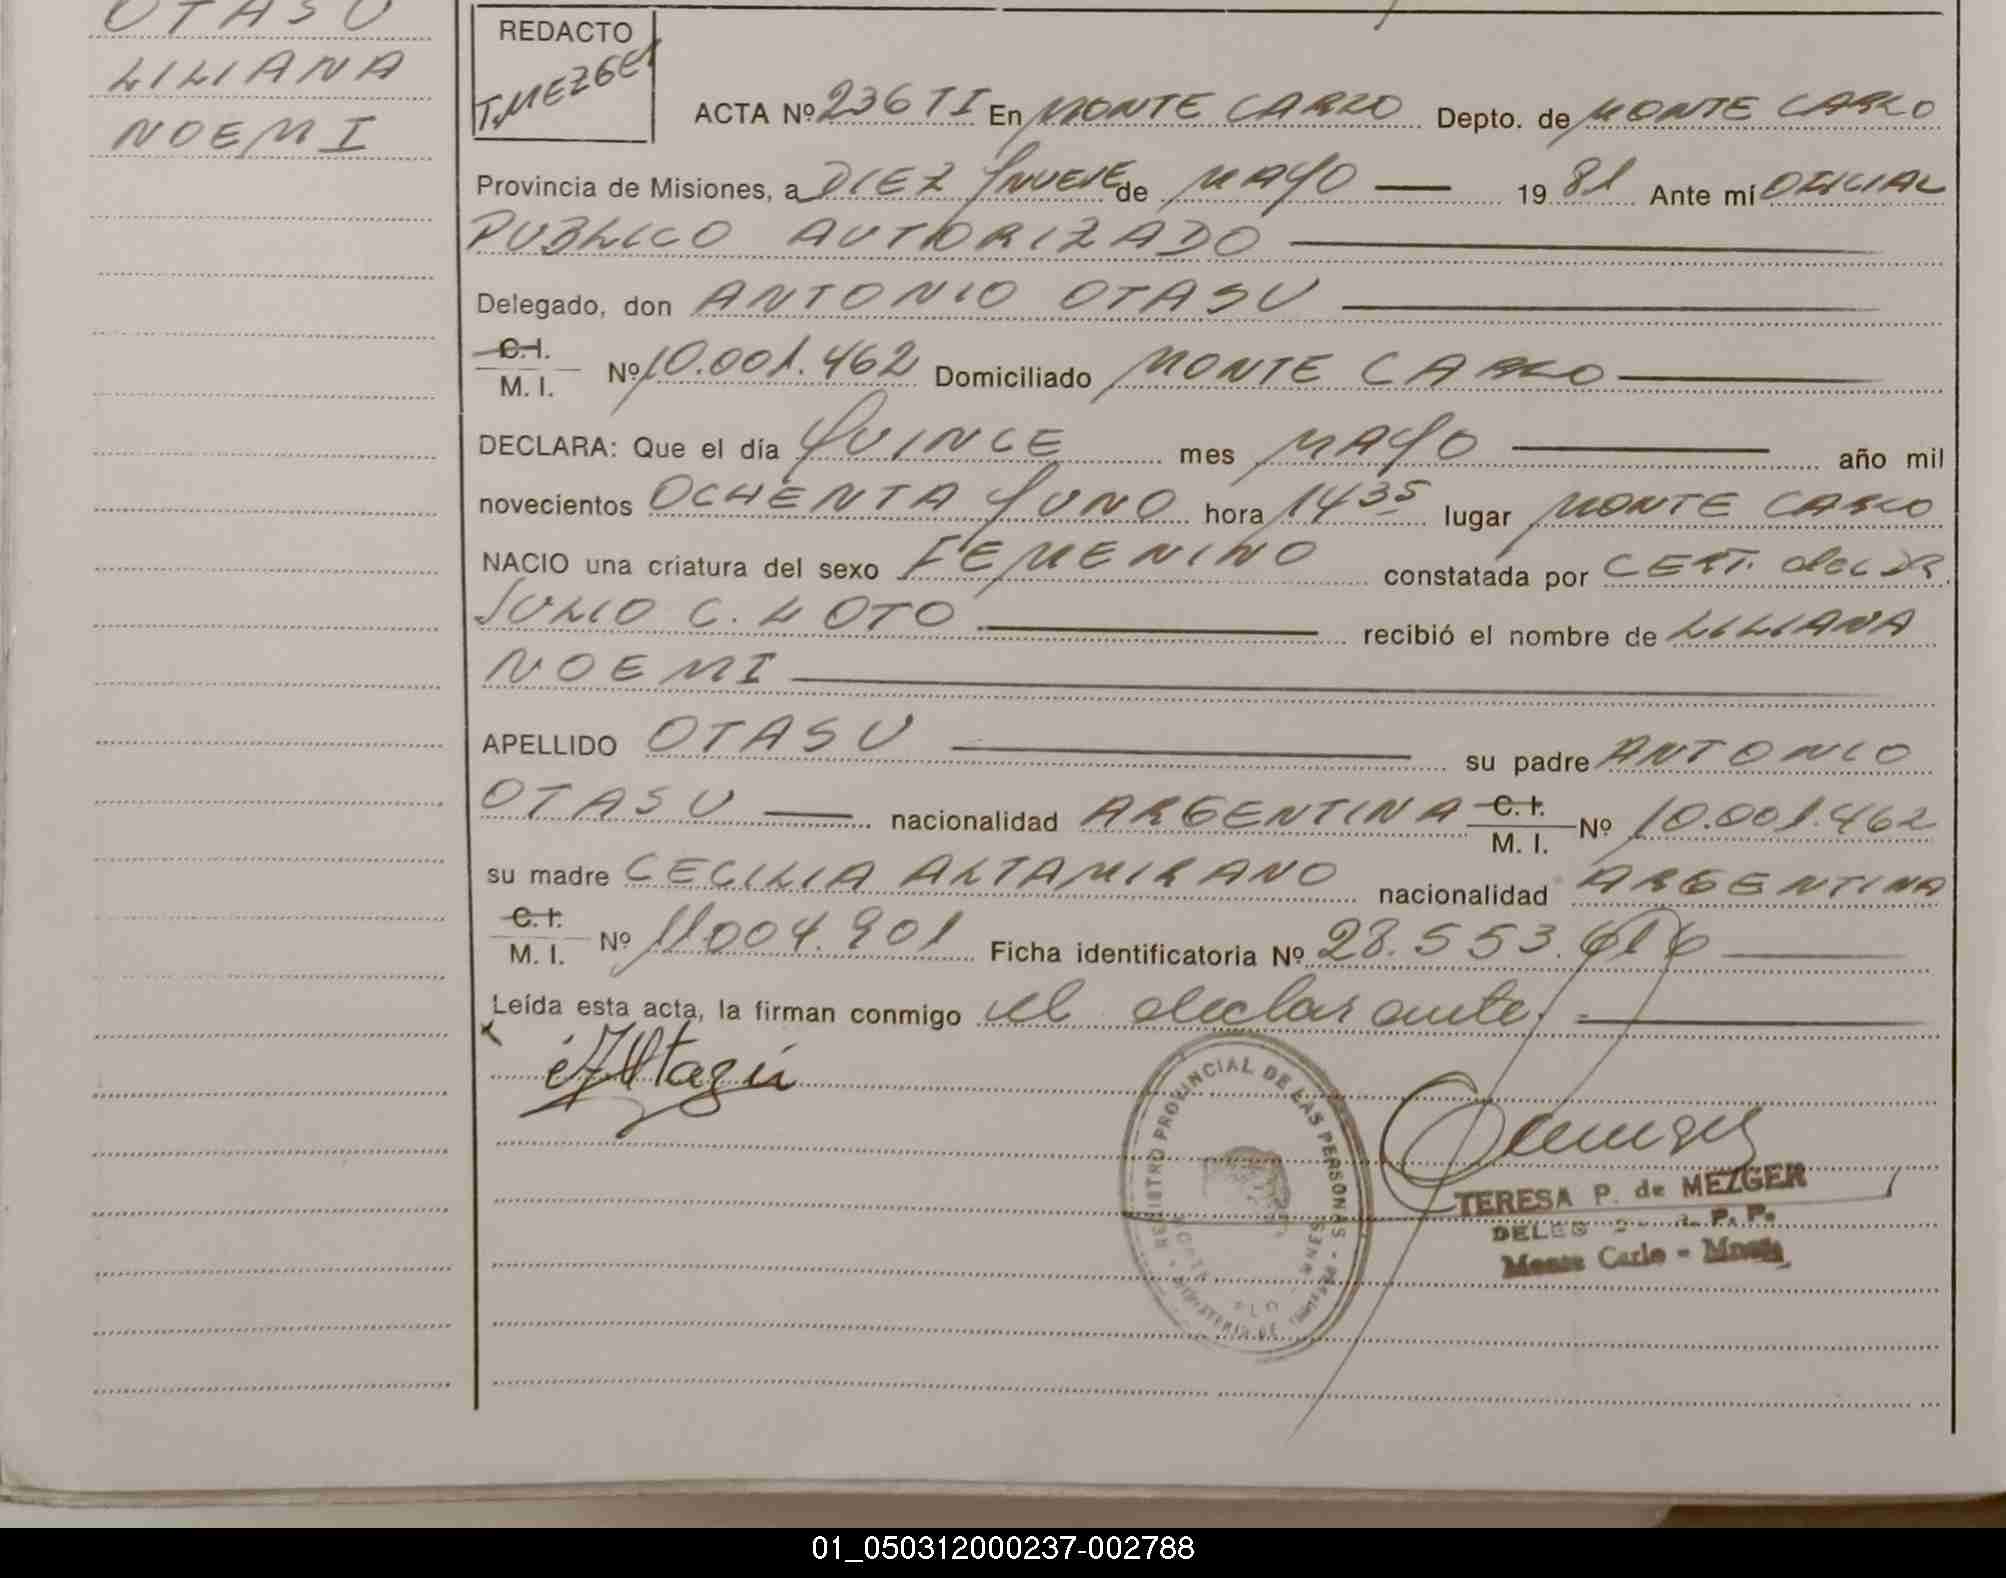 OTASU
LILIANA
NOEMI
REDACTO
T. MEZGER
ACTA Nº 236 TI En MONTE CARLO Depto. de MONTE CARLO
Provincia de Misiones, a DIEZ Y NUEVE de MAYO 19 81 Ante mí OFICIAL
PUBLICO AUTORIZADO
Delegado, don ANTONIO OTASU
C. I.
M. I. Nº 10.001.462 Domiciliado MONTE CARLO
DECLARA: Que el día QUINCE mes MAYO año mil
novecientos OCHENTA Y UNO hora 14 35 lugar MONTE CARLO
NACIO una criatura del sexo FEMENINO constatada por CERT. del DR
JULIO C. LOTO recibió el nombre de LILIANA
NOEMI
APELLIDO OTASU su padre ANTONIO
OTASU nacionalidad ARGENTINA C. I. M. I. Nº 10.001.462
su madre CECILIA ALTAMIRANO nacionalidad ARGENTINA
C. I.
M. I. Nº 11.004.901 Ficha identificatoria Nº 28.553.616
Leída esta acta, la firman conmigo el declarante.
REGISTRO PROVINCIAL DE LAS PERSONAS
TERESA P. de MEZGER
R. P. P.
Monte Carlo - Mnes
01_050312000237-002788